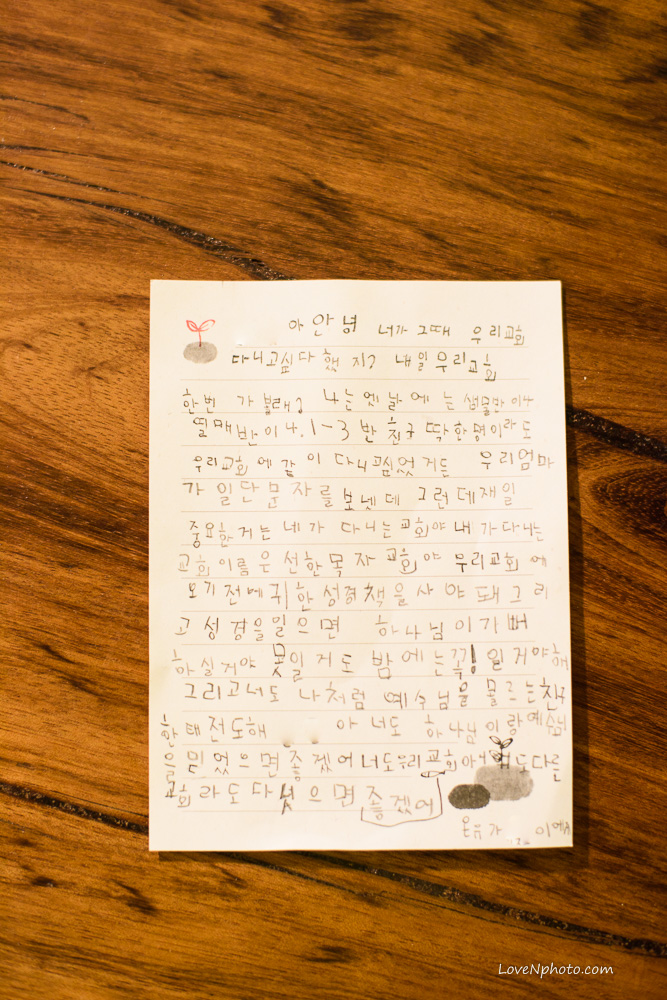 아 안녕 너가 그때 우리교회
다니고싶다 했지? 내일 우리교회
한번 가볼래? 나는 옛날에는 샘물반이야
열매반이야. 1-3반 친구 딱 한명이라도
우리교회에 같이 다니고싶었거든 우리엄마
가 일단 문자를 보넸데 그런데 재일
중요한 거는 네가 다니는 교회야 내가 다니는
교회 이름은 선한목자 교회야 우리교회에
오기전에 귀한성경책을 사야돼 그리
고 성경을 읽으면 하나님이 기뻐
하실거야 못읽거도 밤에는 꼭! 읽거야해
그리고 너도 나처럼 예수님을 몰르는 친구
한태 전도해 아 너도 하나님이랑 예수님
을 믿었으면 좋겠어 너도 우리교회 아 도 다른
교회라도 다녔으면 좋겠어
가
LoveNphoto.com